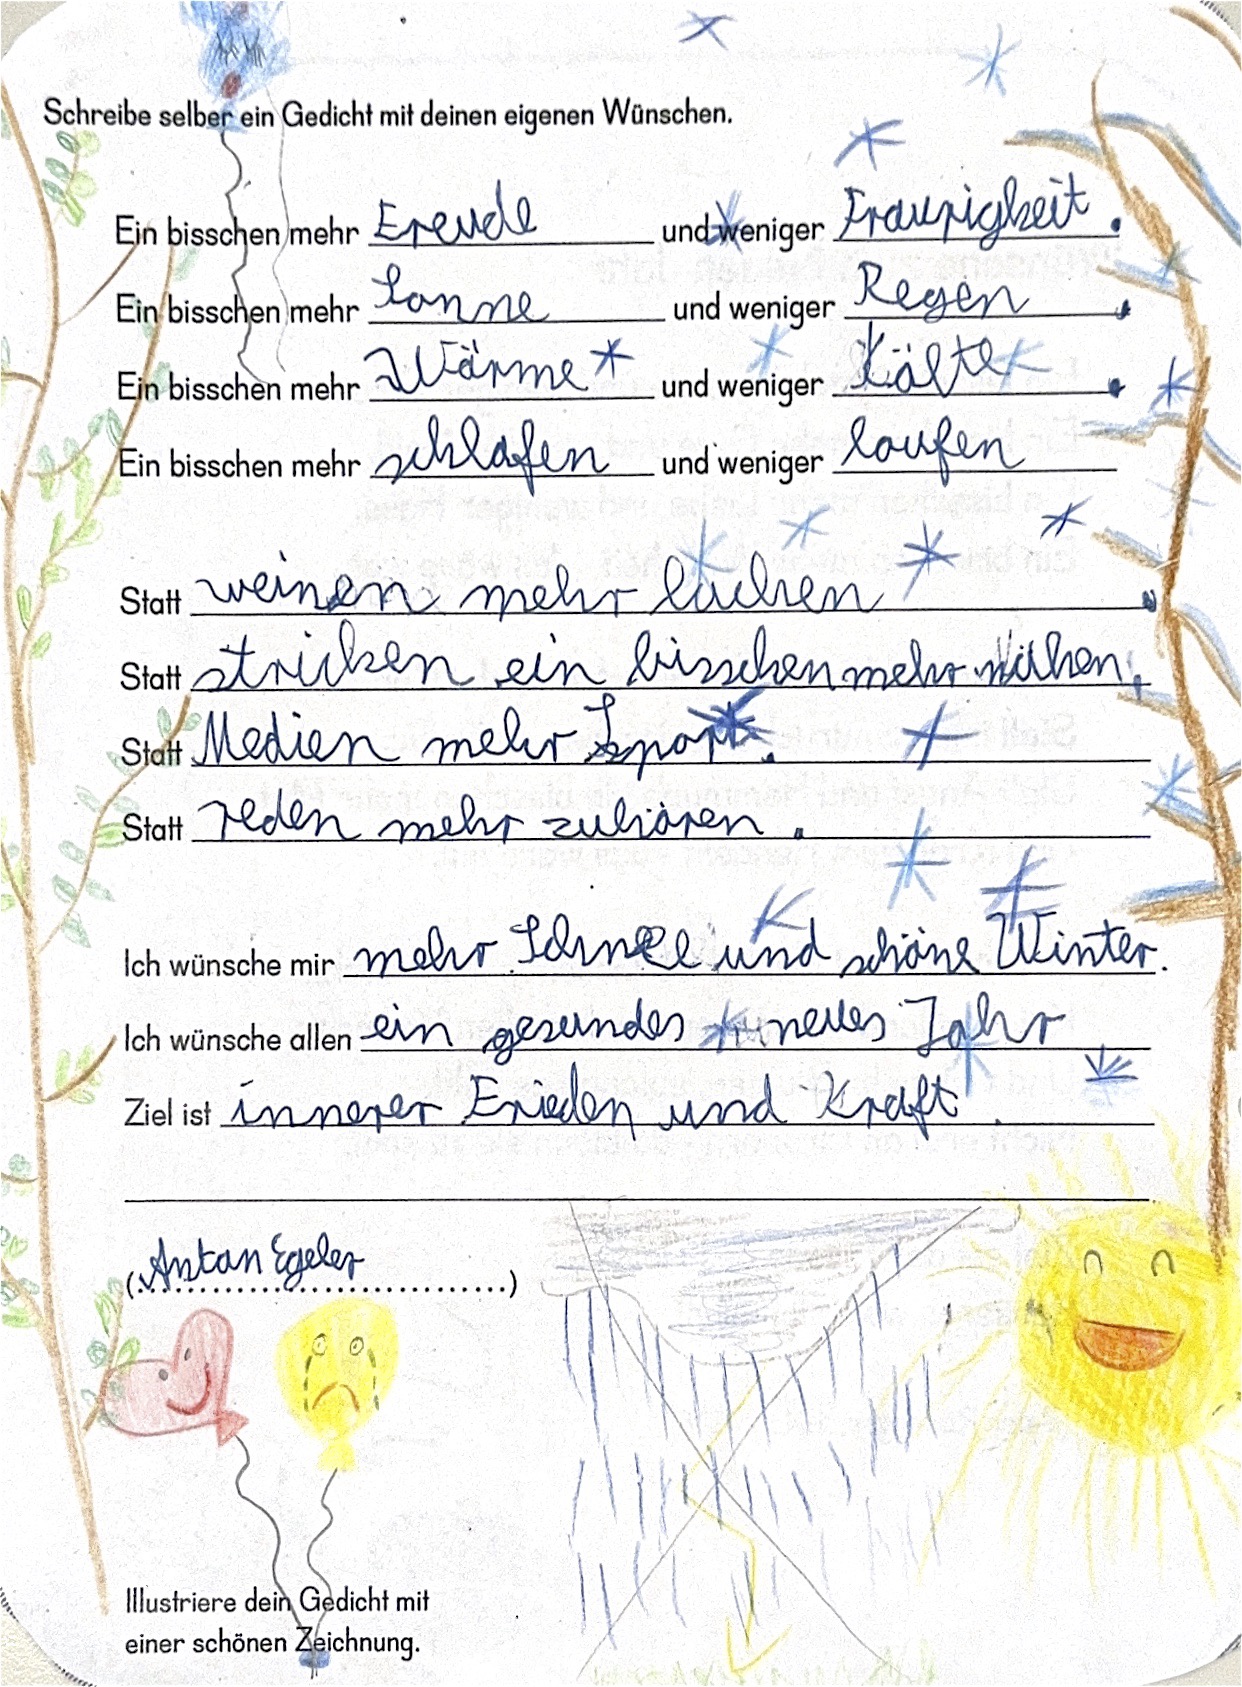 Schreibe selber ein Gedicht mit deinen eigenen Wünschen.
Ein bisschen mehr Freude und weniger Traurigkeit.
Ein bisschen mehr Sonne und weniger Regen.
Ein bisschen mehr Wärme und weniger Kälte.
Ein bisschen mehr schlafen und weniger laufen
Statt weinen mehr lachen.
Statt stricken ein bisschen mehr nähen,
Statt Medien mehr Sport.
Statt reden mehr zuhören.
Ich wünsche mir mehr Schnee und schöne Winter.
Ich wünsche allen ein gesundes neues Jahr
Ziel ist innerer Frieden und Kraft.
(Anton Egeler)
Illustriere dein Gedicht mit
einer schönen Zeichnung.